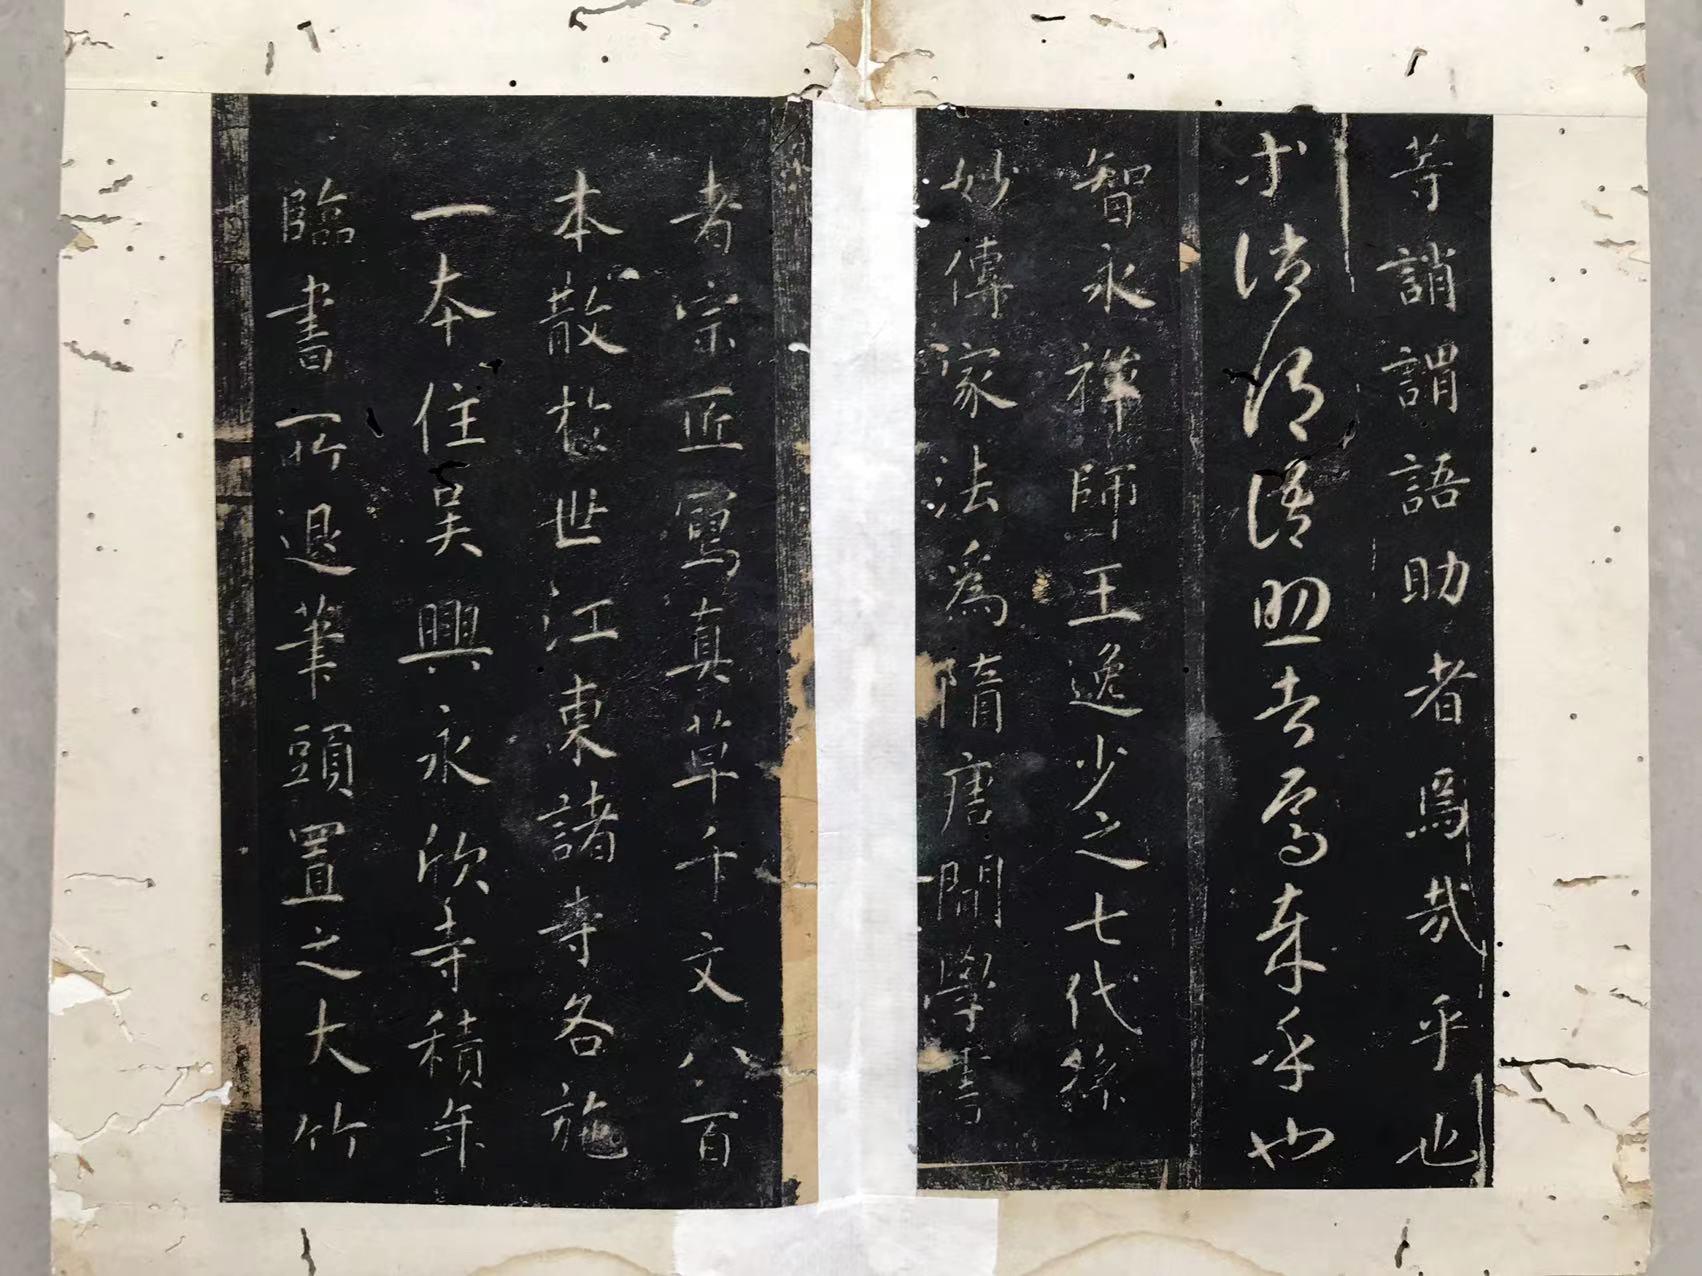 等誚謂語助者焉哉乎也
等誚謂語助者焉哉乎也
智永禪師王逸少之七代孫
妙傳家法為隋唐間學書
者宗匠寫真草千文八百
本散於世江東諸寺各施
一本住吳興永欣寺積年
臨書所退筆頭置之大竹